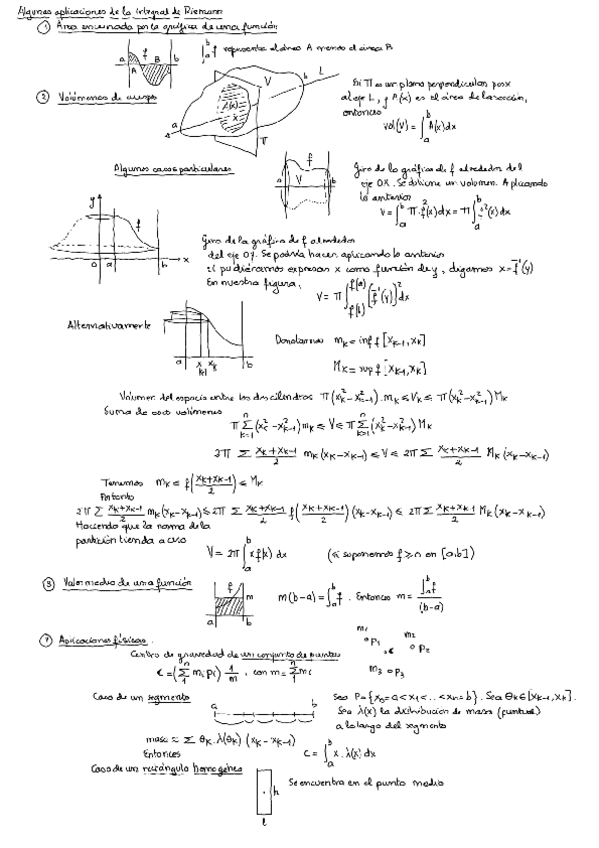 Algunas aplicaciones de la integral de Riemann
① Area encerrada por la gráfica de una función
a A f B b ∫_a^b f representa el área A menos el área B
② Volúmenes de cuerpos
V A(x) x π a b L
Si Π es un plano perpendicular por x
al eje L, y A(x) es el área de la sección,
entonces
vol(V) = ∫_a^b A(x)dx
Algunos casos particulares
a V f b
Giro de la gráfica de f alrededor del
eje OX. Se obtiene un volumen. Aplicando
lo anterior
V = ∫_a^b π f²(x)dx = π ∫_a^b f²(x)dx
y f 0 a b x
Giro de la gráfica de f alrededor
del eje OY. Se podría hacer aplicando lo anterior
si pudiéramos expresar x como función de y, digamos x = f⁻¹(y)
En nuestra figura,
V = π ∫_{f(b)}^{f(a)} [f⁻¹(y)]² dx
Alternativamente
a x_{k-1} x_k b
Denotaremos m_k = inf f [x_{k-1}, x_k]
M_k = sup f [x_{k-1}, x_k]
Volumen del espacio entre los dos cilindros π(x_k² − x_{k-1}²) . m_k ≤ V_k ≤ π(x_k² − x_{k-1}²) M_k
Suma de esos volúmenes
π Σ_{k=1}^n (x_k² − x_{k-1}²) m_k ≤ V ≤ π Σ_{k=1}^n (x_k² − x_{k-1}²) M_k
2π Σ (x_k + x_{k-1})/2 m_k (x_k − x_{k-1}) ≤ V ≤ 2π Σ (x_k + x_{k-1})/2 M_k (x_k − x_{k-1})
Tenemos m_k ≤ f((x_k + x_{k-1})/2) ≤ M_k
Por tanto
2π Σ (x_k + x_{k-1})/2 m_k (x_k − x_{k-1}) ≤ 2π Σ (x_k + x_{k-1})/2 f((x_k + x_{k-1})/2) (x_k − x_{k-1}) ≤ 2π Σ (x_k + x_{k-1})/2 M_k (x_k − x_{k-1})
Haciendo que la norma de la
partición tienda a cero
V = 2π ∫_a^b x f(x) dx (si suponemos f ≥ 0 en [a,b])
③ Valor medio de una función
f m a b
m(b-a) = ∫_a^b f . Entonces m = ∫_a^b f / (b-a)
Aplicaciones físicas.
m₁ p₁ c m₂ p₂
Centro de gravedad de un conjunto de puntos
c = (Σ_1^n m_i p_i) 1/m , con m = Σ_1^n m_i
m₃ p₃
Caso de un segmento
a b
Sea P = {x₀ = a < x₁ < .. < x_n = b} . Sea θ_k ∈ [x_{k-1}, x_k].
Sea λ(x) la distribución de masa (puntual)
a lo largo del segmento
masa ≈ Σ θ_k . λ(θ_k) (x_k − x_{k-1})
Entonces c = ∫_a^b x . λ(x) dx
Caso de un rectángulo homogéneo
h l
Se encuentra en el punto medio